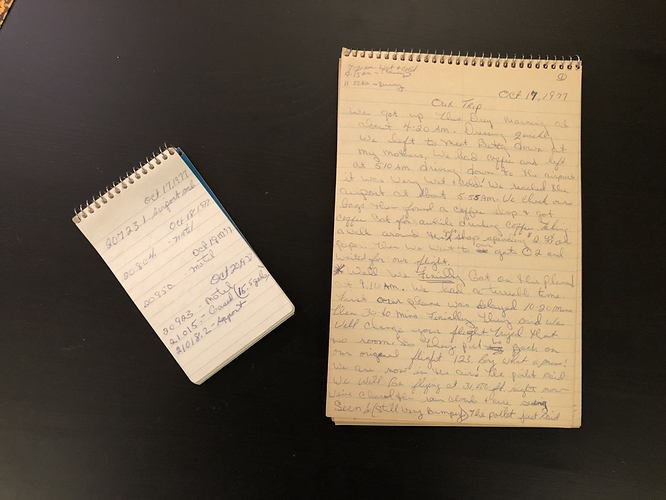 Oct 17, 1977
20723.1 Airport
Oct 18, 1977
20804 - motel
Oct 19, 1977
20850. motel
Oct 20, 1977
20923 - motel
21015 - Gased
21018.2 - Airport
①
Oct 17, 1977
Our Trip
We got up this morning at
about 4:20 AM. Driving
We left to meet Betty down at
my mothers. We had coffee and left
at 5:10 AM driving down to the airport
it was very wet & We reached the
airport at about 5:55 AM. We check our
bags then found a coffee shop & got
coffee sat for awhile drinking coffee then
a walk around the shop spending $2.98 on
paper. Then we went to gate C2 and
waited for our flight.
* Well we finally got on the plane
9:10 AM. We had a terrible time
first our plane was delayed 10-20 mins
then 30-60 mins finally they said we
will change your flight tryed that
no room so they put us back on
our original flight 123. Boy what a mess!
We are now in the air. The pilot said
we will be flying at 31,000 ft right now
rain cloud
Seen (still very bumpy) The pilot just said